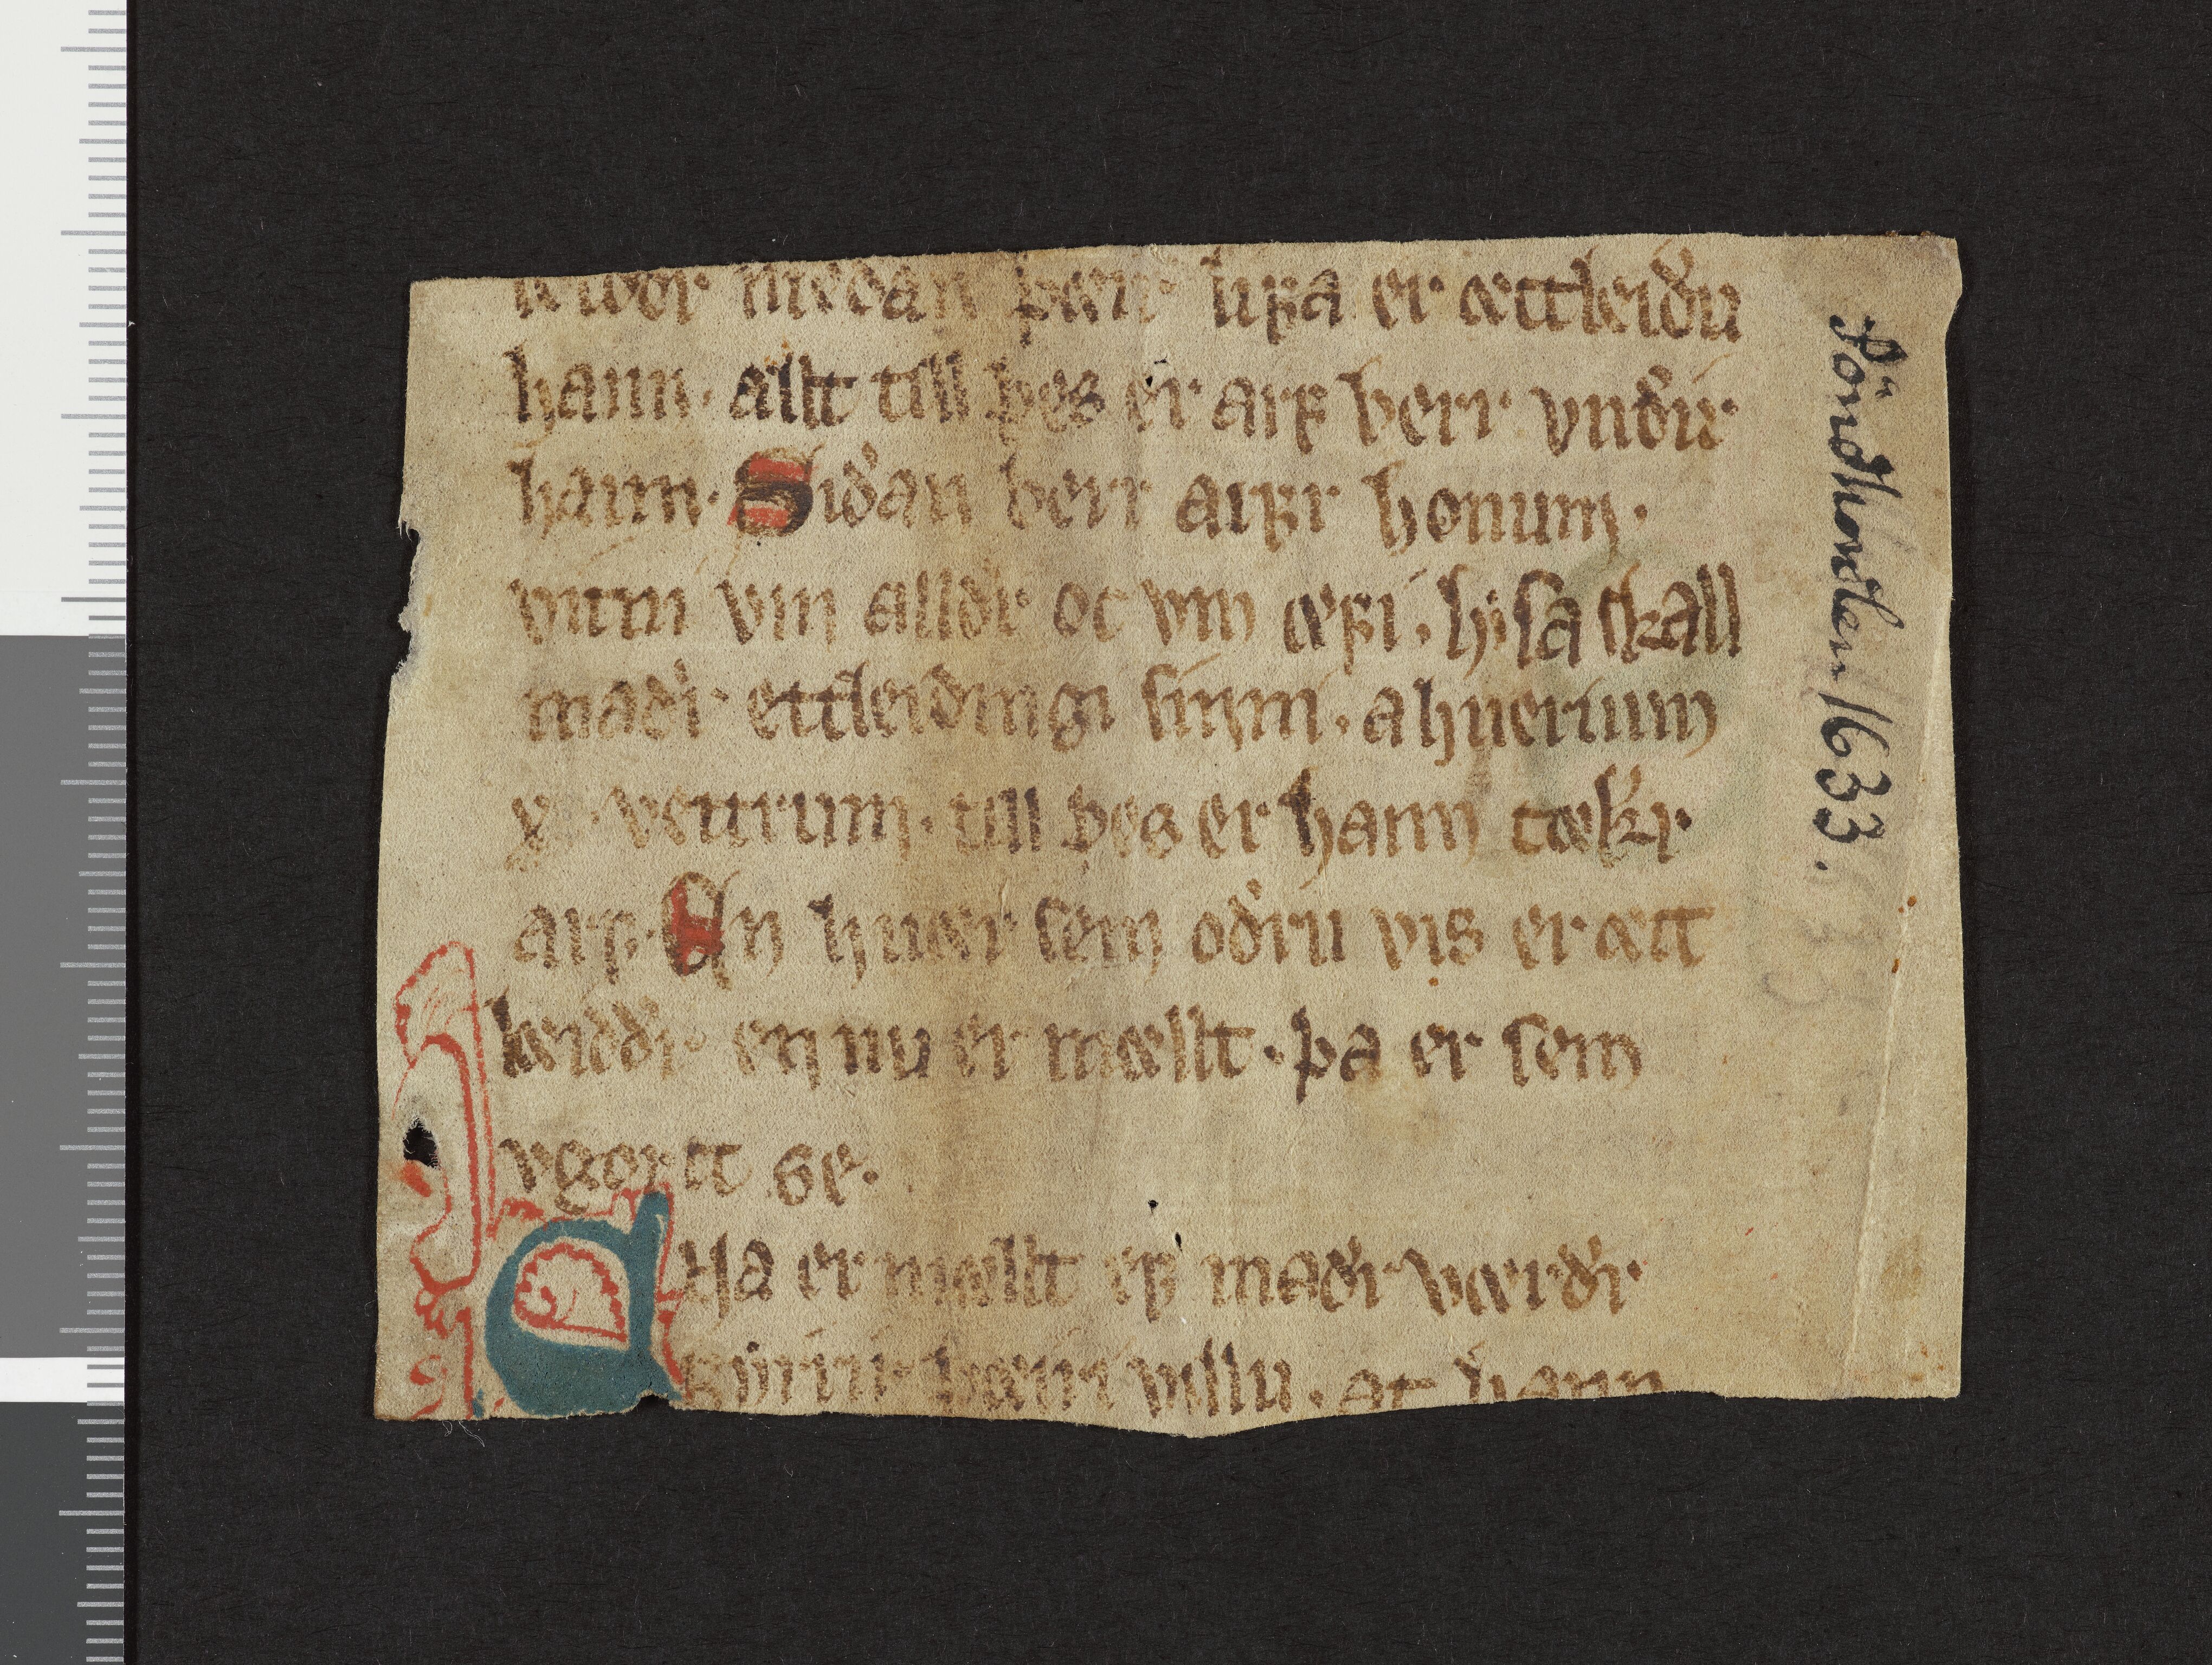 leiddr meðan þæir lifa er ættleiddu
hann. allt till þes er arf berr vndir
hann. Siðan berr arfr honum.
vntin vm alldr oc vm æfi. lysa skall
maðr ettleidingi sinni. a huerium
x. vettrum. till þes er hann tækr
arf. En huær sem oðru vis er ætt
læiddr en nu er mællt. þa er sem
vgortt se.
Þat er mællt ef maðr værðr
firir þæiri villu. at hann
Söndhordlen 1633.